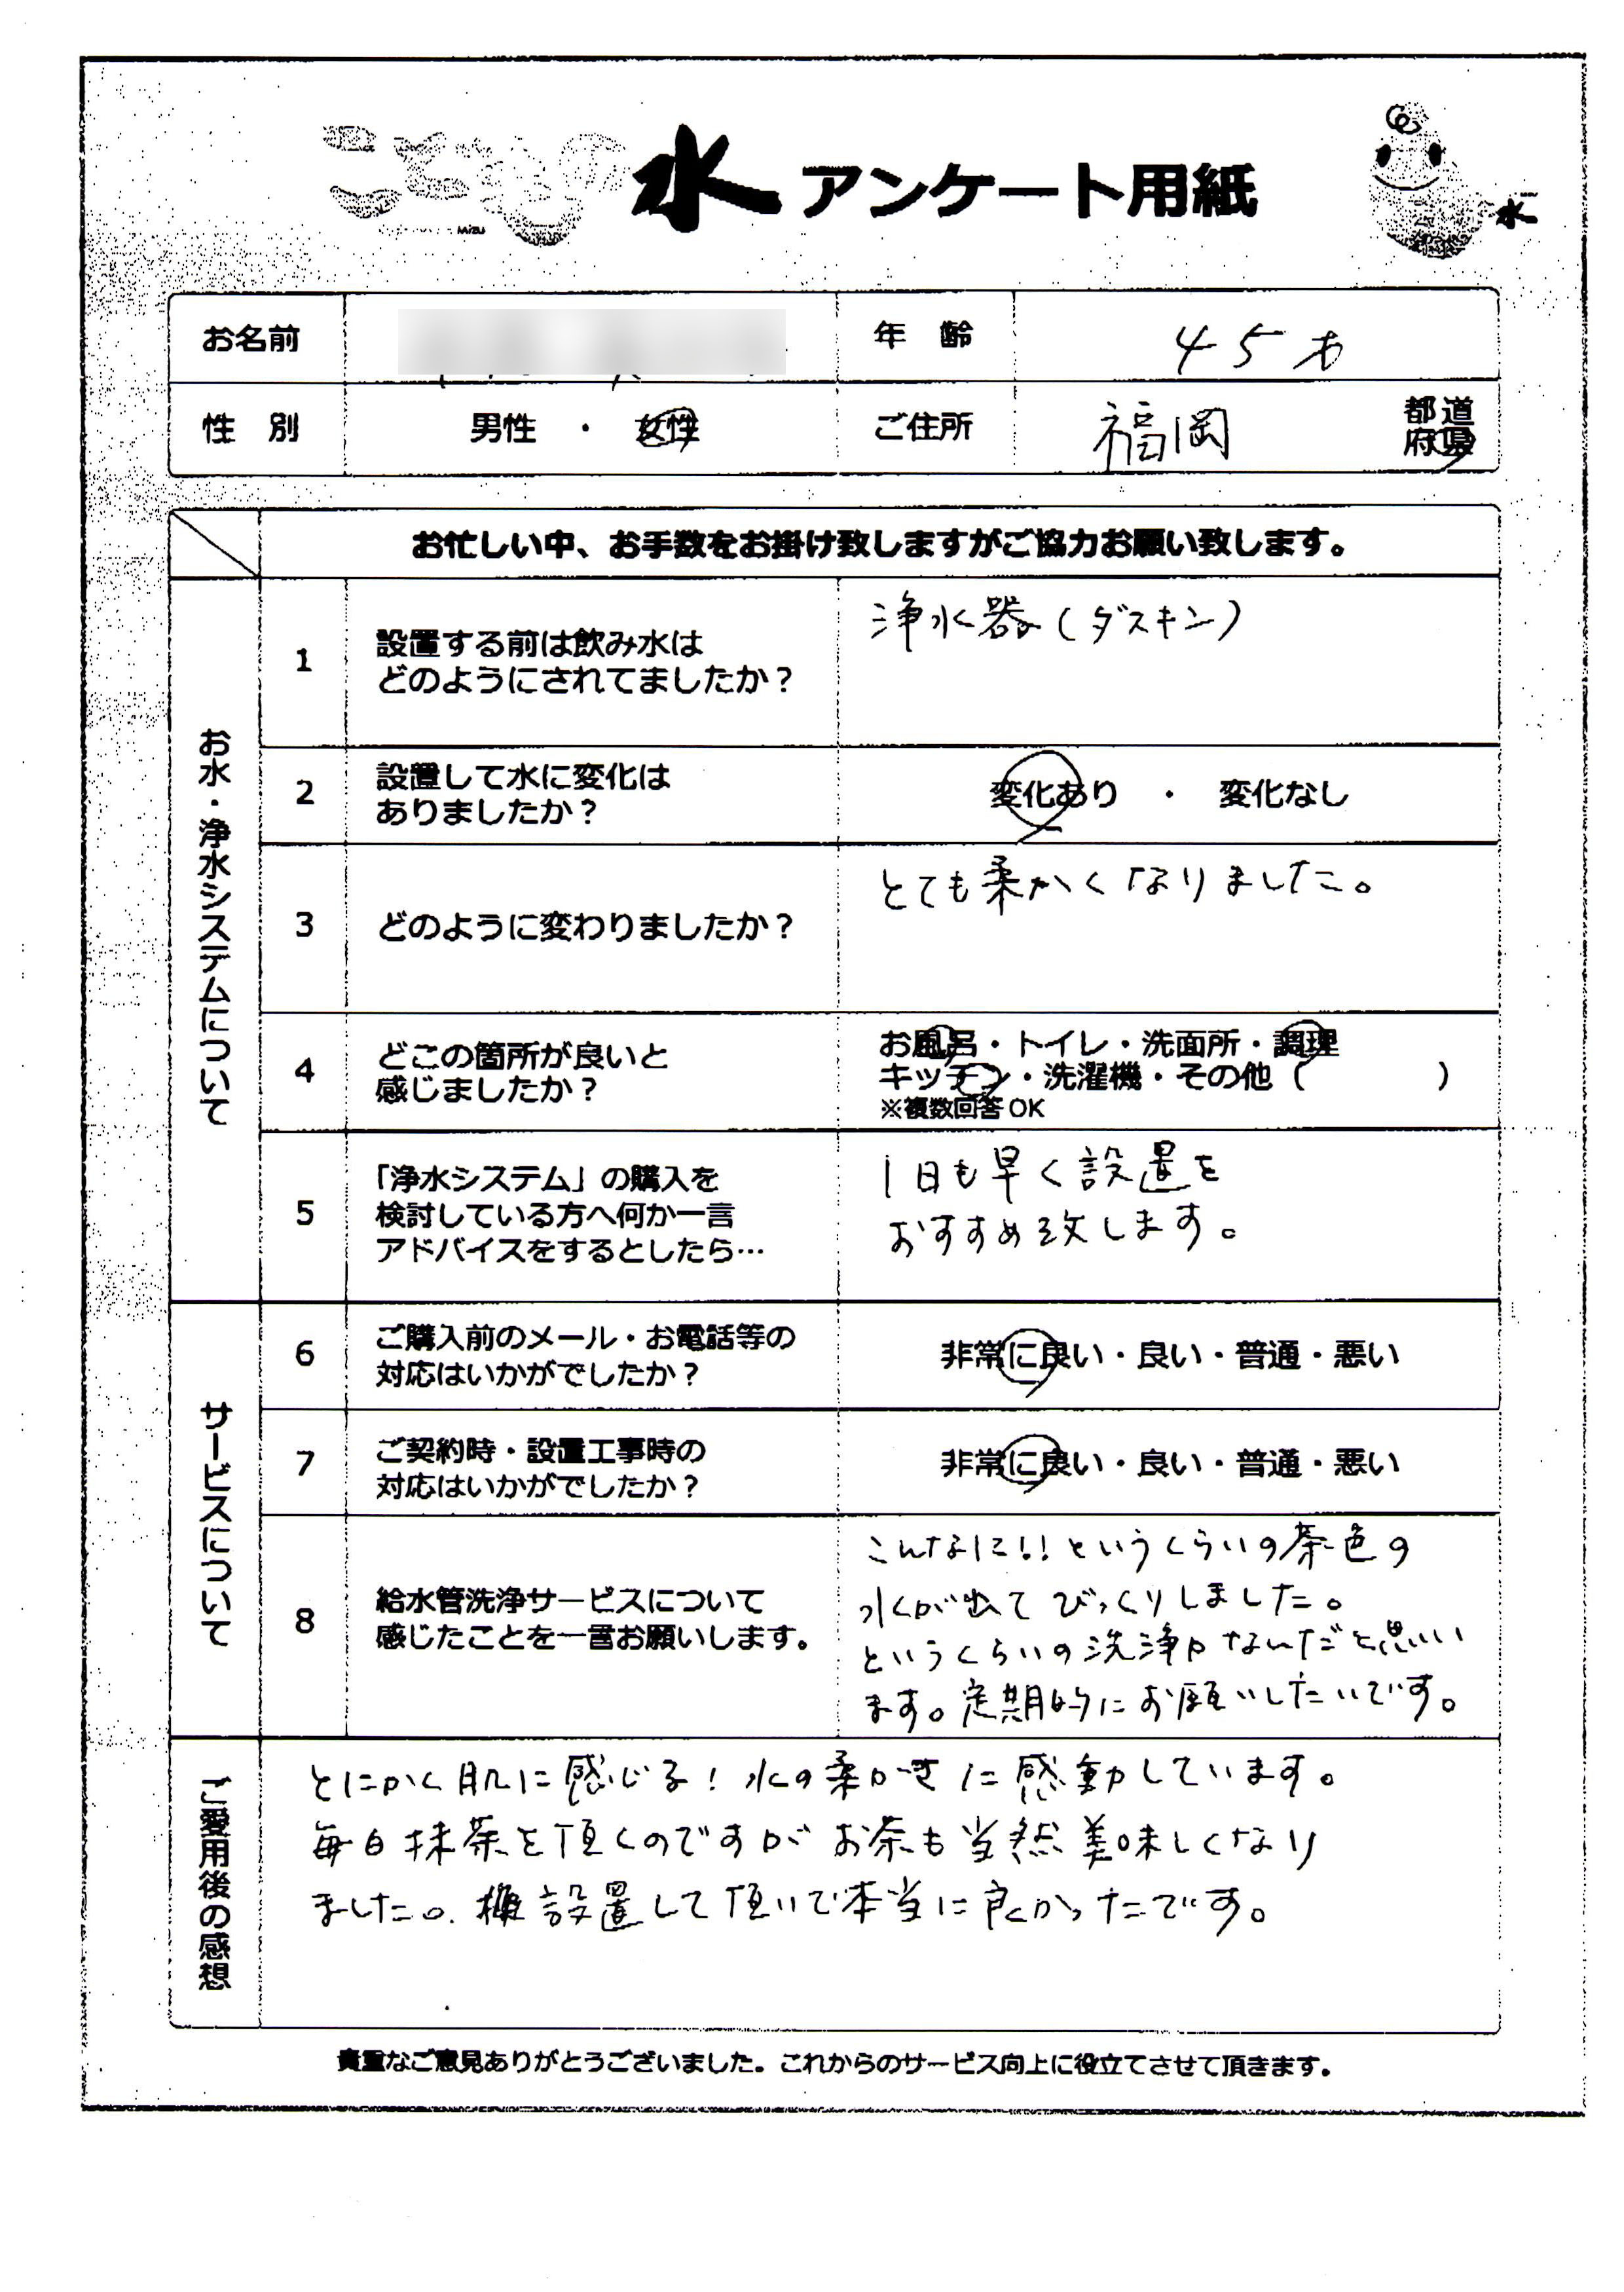 こどもの水 アンケート用紙
MIZU
水
お名前
年 齢 45才
性 別 男性 ・ 女性
ご住所 福岡 都道府県
お忙しい中、お手数をお掛け致しますがご協力お願い致します。
お水・浄水システムについて
1 設置する前は飲み水は
どのようにされてましたか?
浄水器(ダスキン)
2 設置して水に変化は
ありましたか?
変化あり ・ 変化なし
3 どのように変わりましたか?
とても柔かくなりました。
4 どこの箇所が良いと
感じましたか?
お風呂・トイレ・洗面所・調理
キッチン・洗濯機・その他( )
※複数回答OK
5 「浄水システム」の購入を
検討している方へ何か一言
アドバイスをするとしたら…
1日も早く設置を
おすすめ致します。
サービスについて
6 ご購入前のメール・お電話等の
対応はいかがでしたか?
非常に良い・良い・普通・悪い
7 ご契約時・設置工事時の
対応はいかがでしたか?
非常に良い・良い・普通・悪い
8 給水管洗浄サービスについて
感じたことを一言お願いします。
こんなに!!というくらいの茶色の
水が出てびっくりしました。
というくらいの洗浄力なんだと思い
ます。定期的にお願いしたいです。
ご愛用後の感想
とにかく肌に感じる!水の柔かさに感動しています。
毎日抹茶を頂くのですがお茶も当然美味しくなり
ました。設置して頂いて本当に良かったです。
貴重なご意見ありがとうございました。これからのサービス向上に役立てさせて頂きます。